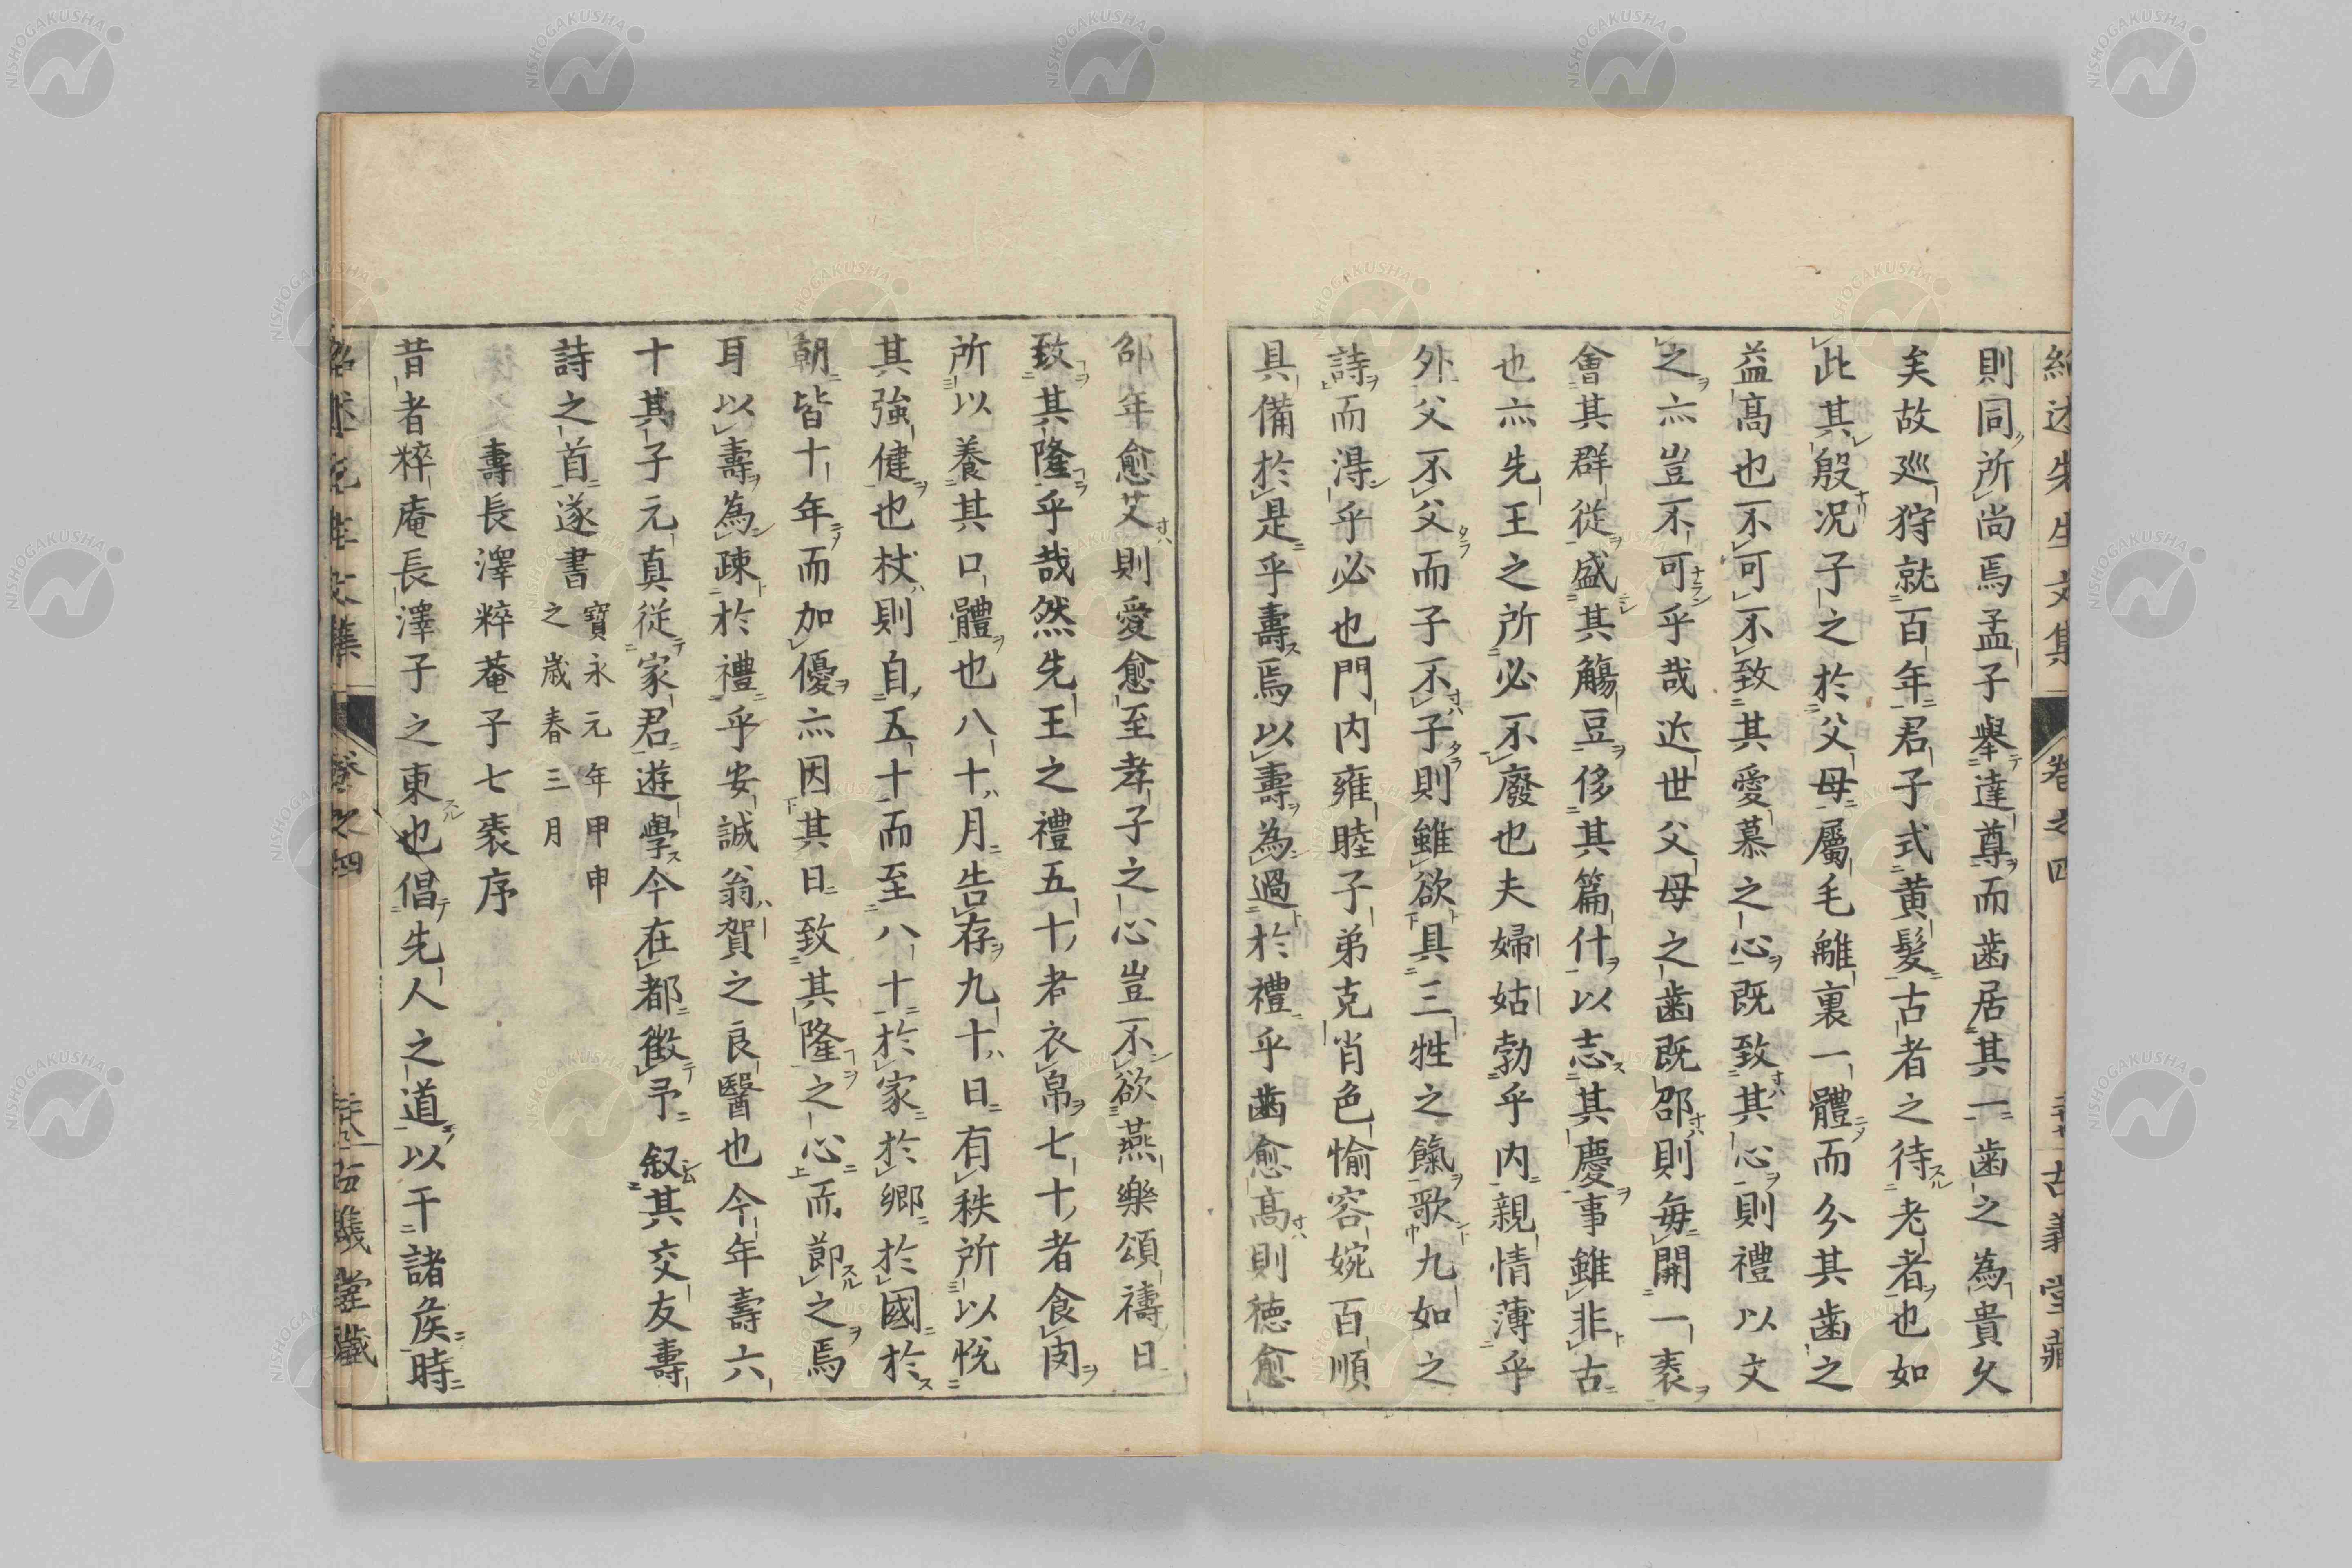 紹述先生文集 卷之四 古義堂藏
則同所尚焉孟子舉達尊而齒居其一齒之為貴久
矣故廵狩就百年君子式黄髮古者之待老者也如
此其殷况子之於父母屬毛離裏一體而分其齒之
益髙也不可不致其愛慕之心既致其心則禮以文
之亦豈不可乎哉近世父母之齒既邵則每開一袠
會其群從盛其觴豆侈其篇什以志其慶事雖非古
也亦先王之所必不廢也夫婦姑勃乎内親情薄乎
外父不父而子不子則雖欲具三牲之餼歌九如之
詩而淂乎必也門内雍睦子弟克肖色愉容婉百順
具備於是乎壽焉以壽為過於禮乎齒愈髙則德愈
邵年愈艾則愛愈至孝子之心豈不欲燕樂頌禱日
致其隆乎哉然先王之禮五十者衣帛七十者食肉
所以養其口體也八十月告存九十日有秩所以悅
其強健也杖則自五十而至八十於家於鄉於國於
朝皆十年而加優亦因其日致其隆之心而節之焉
耳以壽為疎於禮乎安誠翁賀之良醫也今年壽六
十其子元真從家君遊學今在都徵予叙其交友壽
詩之首遂書寶永元年甲申之歲春三月
壽長澤粹菴子七袠序
昔者粹庵長澤子之東也倡先人之道以干諸矦時
紹述先生文集 卷之四 古義堂藏